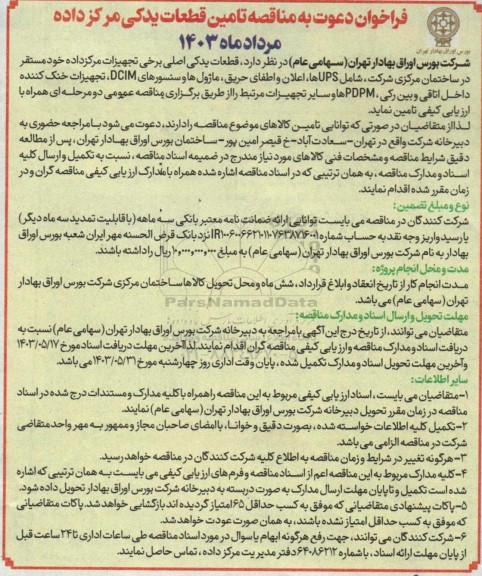 فراخوان دعوت به مناقصه تامین قطعات یدکی مرکز داده
مرداد ماه ۱۴۰۳
بورس اوراق بهادار تهران
شرکت بورس اوراق بهادار تهران (سهامی عام) در نظر دارد، قطعات یدکی اصلی برخی تجهیزات مرکز داده خود مستقر
در ساختمان مرکزی شرکت، شامل UPSها، اعلان و اطفای حریق، ماژول ها و سنسورهای DCIM، تجهیزات خنک کننده
داخل اتاقی و بین رکی، PDPMها و سایر تجهیزات مرتبط را از طریق برگزاری مناقصه عمومی دو مرحله ای همراه با
ارزیابی کیفی تامین نماید.
لذا از متقاضیان در صورتی که توانایی تامین کالاهای موضوع مناقصه را دارند، دعوت می شود با مراجعه حضوری به
دبیرخانه شرکت واقع در تهران - سعادت آباد - خ قیصر امین پور - ساختمان بورس اوراق بهادار تهران، پس از مطالعه
دقیق شرایط مناقصه و مشخصات فنی کالاهای مورد نیاز مندرج در ضمیمه اسناد مناقصه، نسبت به تکمیل و ارسال کلیه
اسناد و مدارک مناقصه، به همان ترتیبی که در اسناد مناقصه اشاره شده همراه با مدارک ارزیابی کیفی مناقصه گران و در
زمان مقرر شده اقدام نمایند.
نوع و مبلغ تضمین:
شرکت کنندگان در مناقصه می بایست توانایی ارائه ضمانت نامه معتبر بانکی سه ماهه (با قابلیت تمدید سه ماه دیگر)
یا رسید واریز وجه نقد به حساب شماره نزد بانک قرض الحسنه مهر ایران شعبه بورس اوراق
بهادار به نام شرکت بورس اوراق بهادار تهران (سهامی عام) به مبلغ ۱۰,۰۰۰,۰۰۰,۰۰۰ ریال را داشته باشند.
مدت و محل انجام پروژه:
مدت انجام کار از تاریخ انعقاد و ابلاغ قرارداد، شش ماه و محل تحویل کالاها ساختمان مرکزی شرکت بورس اوراق بهادار
تهران (سهامی عام) می باشد.
ParsNamadData
مهلت تحویل و ارسال اسناد و مدارک مناقصه:
متقاضیان می توانند، از تاریخ درج این آگهی با مراجعه به دبیرخانه شرکت بورس اوراق بهادار تهران (سهامی عام) نسبت به
دریافت اسناد و مدارک مناقصه و ارزیابی کیفی مناقصه گران اقدام نمایند. لذا آخرین مهلت دریافت اسناد مورخ ۱۴۰۳/۰۵/۱۷
و آخرین مهلت تحویل اسناد و مدارک تکمیل شده، پایان وقت اداری روز چهارشنبه مورخ ۱۴۰۳/۰۵/۳۱ می باشد.
سایر اطلاعات:
۱- متقاضیان می بایست، اسناد ارزیابی کیفی مربوط به این مناقصه را همراه با کلیه مدارک و مستندات درج شده در اسناد
مناقصه در زمان مقرر تحویل دبیرخانه شرکت بورس اوراق بهادار تهران (سهامی عام) نمایند.
۲- تکمیل کلیه اطلاعات خواسته شده، بصورت دقیق و خوانا، با امضای صاحبان مجاز و ممهور به مهر واحد متقاضی
شرکت در مناقصه الزامی می باشد.
۳- هرگونه تغییر در شرایط و زمان مناقصه به اطلاع کلیه شرکت کنندگان در مناقصه خواهد رسید.
۴- کلیه مدارک مربوط به این مناقصه اعم از اسناد مناقصه و فرم های ارزیابی کیفی می بایست به همان ترتیبی که اشاره
شده است تکمیل و تا پایان مهلت ارسال مدارک به صورت دربسته به دبیرخانه شرکت بورس اوراق بهادار تهران تحویل داده شود.
۵- پاکات پیشنهادی متقاضیانی که موفق به کسب حداقل ۶۵ امتیاز گردیده اند بازگشایی خواهد شد. پاکات متقاضیانی
که موفق به کسب حداقل امتیاز نشده باشند، به همان صورت عودت خواهد شد.
۶- شرکت کنندگان می توانند، جهت رفع هرگونه ابهام یا سوال در مورد اسناد مناقصه طی ساعات اداری تا ۲۴ ساعت قبل
از پایان مهلت ارائه اسناد، با شماره ۶۴۰۸۶۲۱۲ دفتر مدیریت مرکز داده، تماس حاصل نمایند.